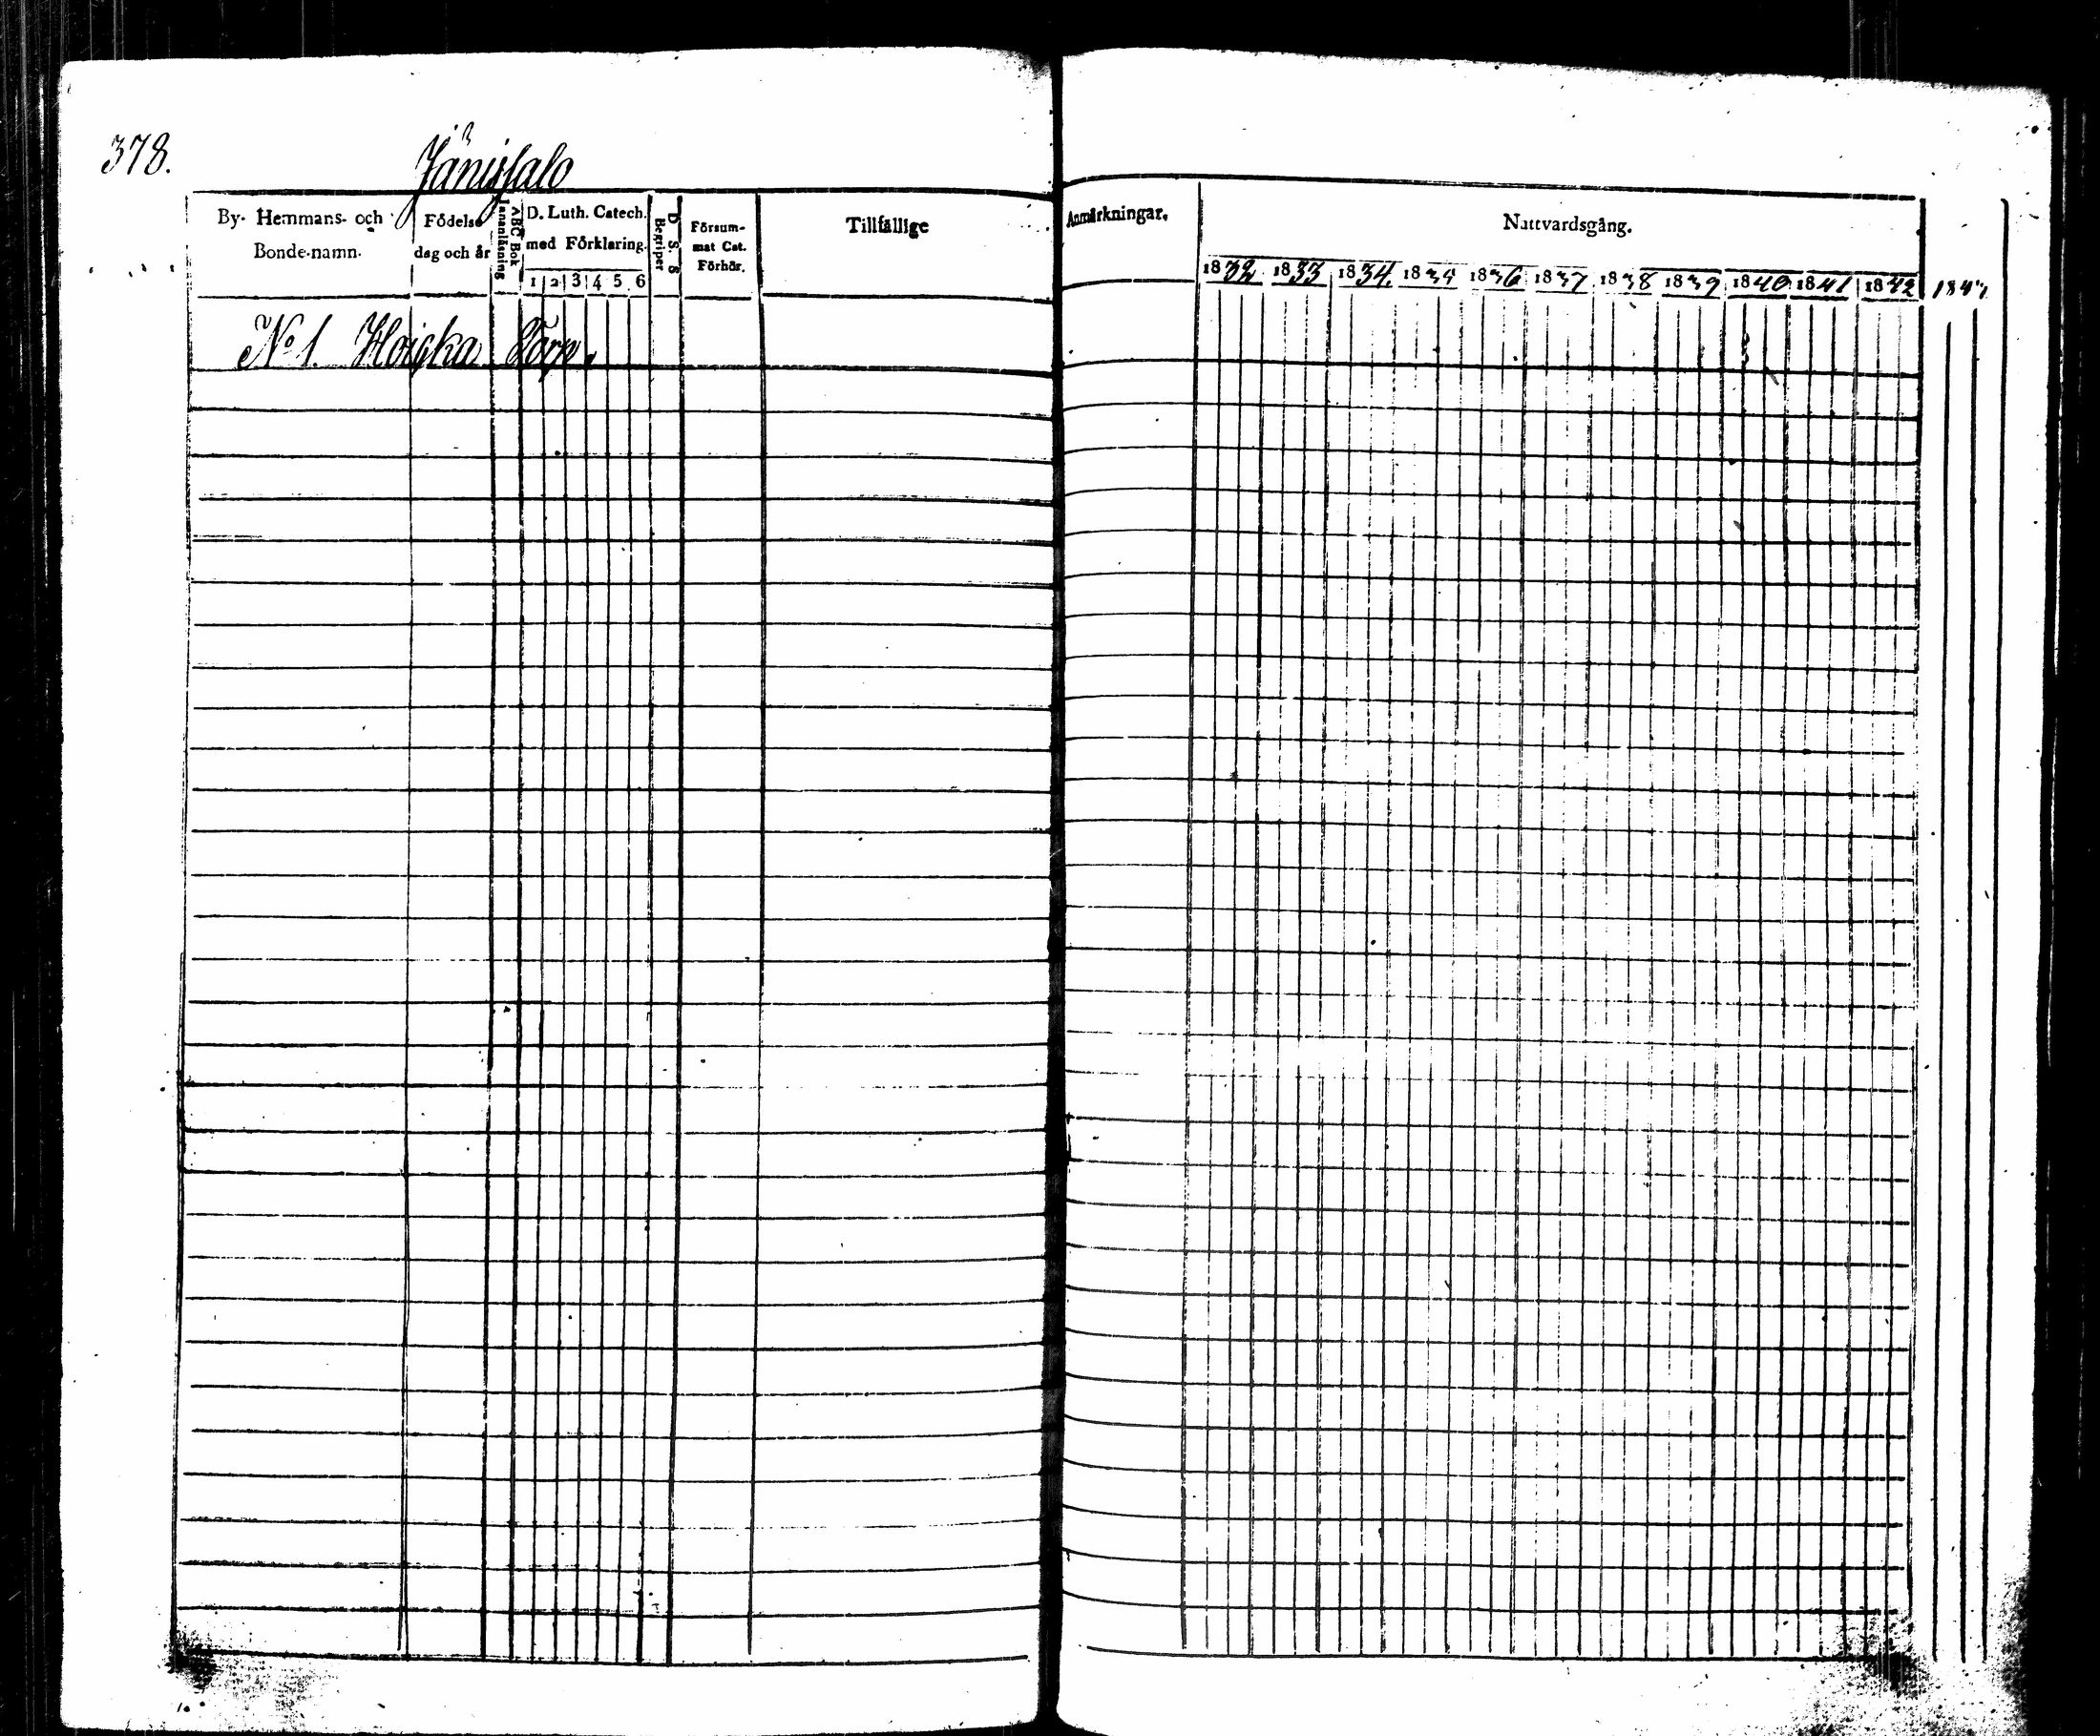 378.
Jänissalo
By- Hemmans- och Bonde-namn.
Födelse dag och år
Innanläsning
ABC Bok
D. Luth. Catech. med Förklaring.
1 2 3 4 5 6
D. S. S
Begriper
Försum- mat Cat. Förhör.
Tillfällige
Anmärkningar.
Nattvardsgång.
1832 1833 1834. 1835 1836 1837 1838 1839 1840 1841 1842
No 1. Hoiska Torp.